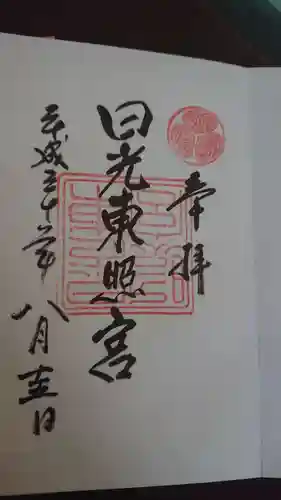 奉拝
日光東照宮
平成三十年
八月十五日